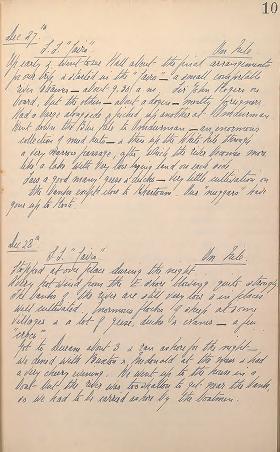 10
Dec 27th
S.S. "Fara" On Nile.
Up early & went to see Hall about the final arrangements
for our trip & started in the "Fara" — a small comfortable
river steamer — about 9.30 a.m. Sir John Rogers on
board, but the others — about a dozen — mostly foreigners
Had a barge alongside & picked up another at Omdurman
Went down the Blue Nile to Omdurman — an enormous
collection of mud huts — & then up the White Nile through
a very narrow passage, after which the river becomes more
like a lake with very low lying land on each side
Saw a good many geese & ducks — very little cultivation on
the banks except close to Khartoum. Our "nuggars" have
gone up to Bor.
Dec 28th
S.S. "Fara" On Nile.
Stopped at one place during the night.
A very hot wind from the E shore blowing quite strongly
The banks of the river are still very low & in places
well cultivated, enormous flocks of sheep at some
villages & a lot of geese, ducks & cranes — a few
Got to Dueim about 3 & ran ashore for the night
we dined with & McDonald at the mess & had
a very cheery evening. We went up to the mess in a
boat but the river was too shallow to get near the bank,
so we had to be carried ashore by the boatmen.